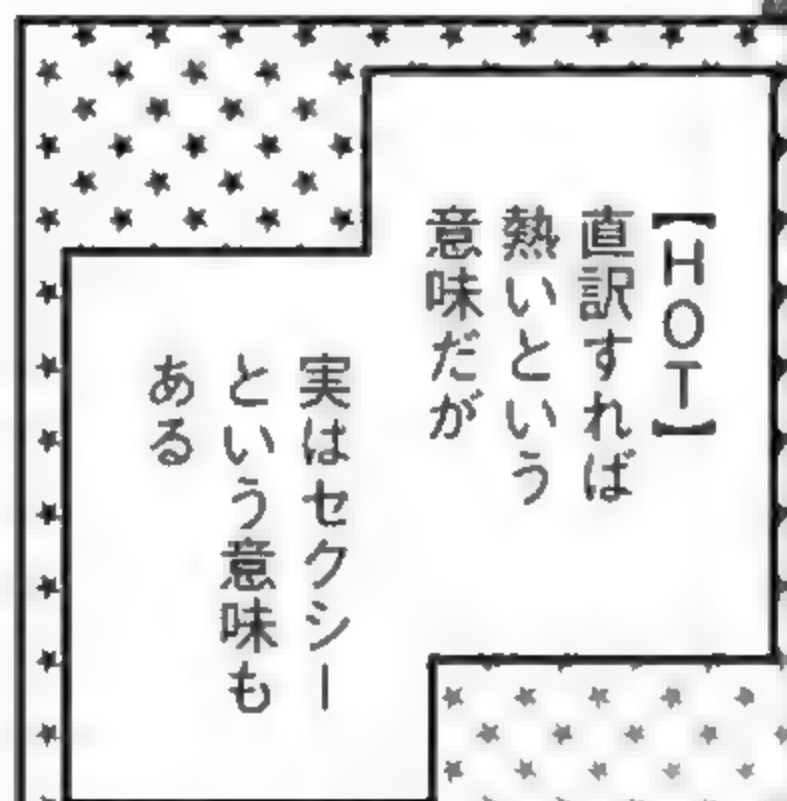 【HOT】
直訳すれば
熱いという
意味だが
実はセクシー
という意味も
ある